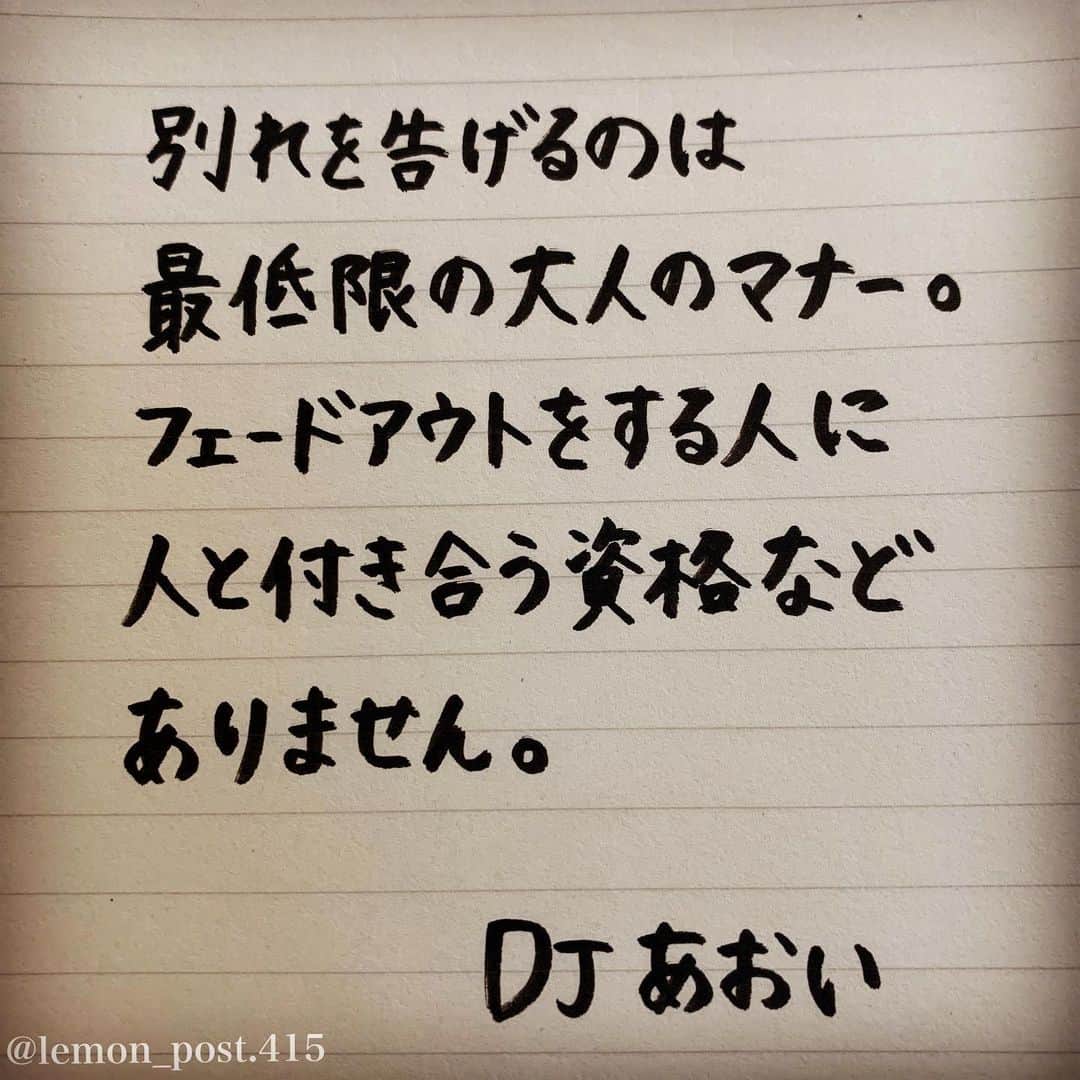 別れを告げるのは
最低限の大人のマナー。
フェードアウトをする人に
人と付き合う資格など
ありません。
DJあおい
@lemon_post.415